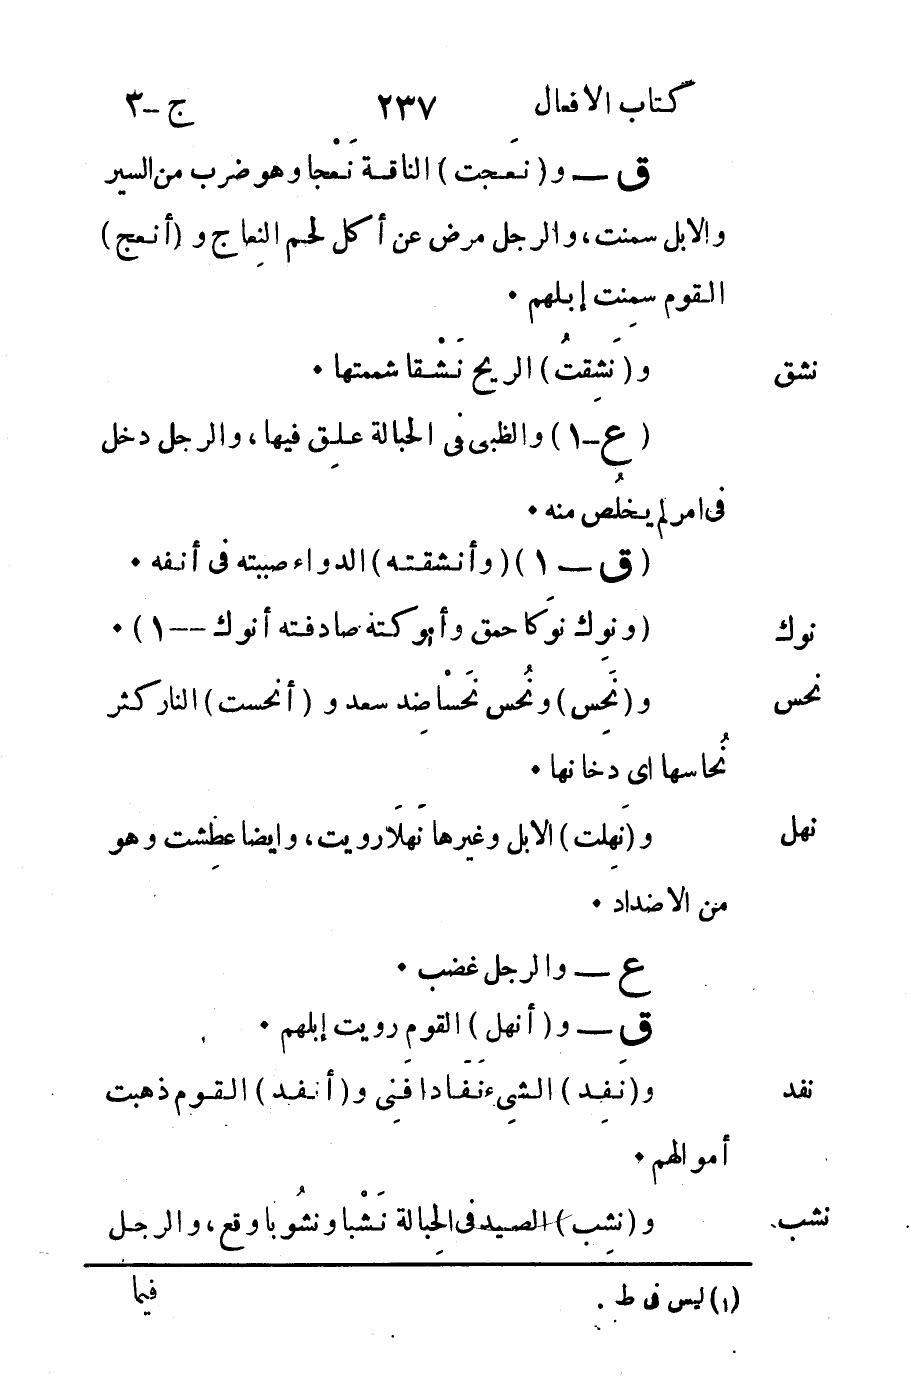 كتاب الافعال ٢٣٧ ج–٣
ق — و (نَعَجت) الناقة نَعْجا وهو ضرب من السير
والابل سمنت، والرجل مرض عن أكل لحم النِعاج و (أنعج)
القوم سمِنت إبلهم ٠
نشق و (نَشِقتُ) الريح نَشْقا شممتها ٠
(ع–١) والظبى فى الحبالة علِق فيها، والرجل دخل
فى امر لم يخلُص منه ٠
(ق — ١) (وأنشقته) الدواء صببته فى أنفه ٠
نوك (ونوِك نوَكا حمق وأنوكته صادفته أنوك –– ١) ٠
نحس و (نَحِس) ونحُس نَحْسا ضد سعِد و (أنحست) النار كثر
نُحاسها اى دخانها ٠
نهل و (نَهِلت) الابل وغيرها نَهَلا رويت، وايضا عطِشت وهو
من الاضداد ٠
ع — والرجل غضب ٠
ق — و (أنهل) القوم رويت إبلهم ٠
نفد و (نَفِد) الشيء نَفَادا فَنِى و (أنفد) القوم ذهبت
أموالهم ٠
نشب و (نشِب) الصيد فى الحِبالة نَشْبا ونشُوبا وقع، والرجل
(١) ليس فى ط .
فيما